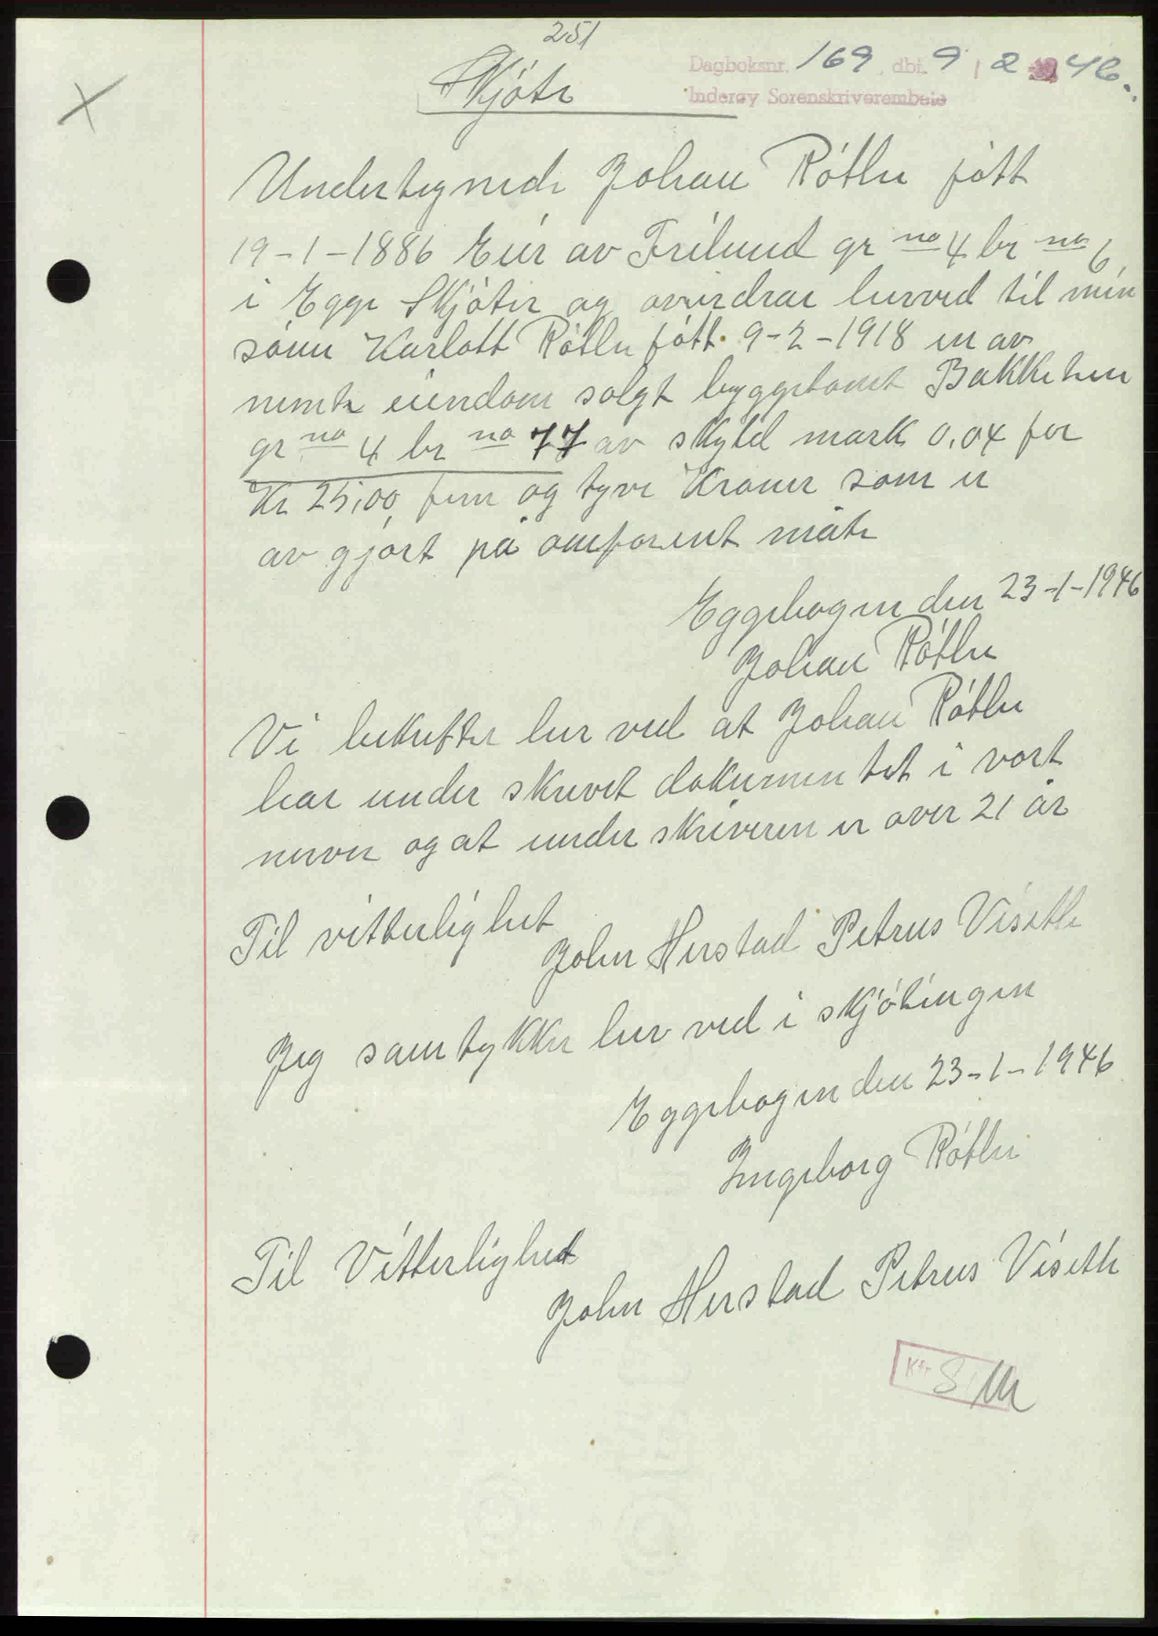 251
Dagboksnr. 169 dbf. 9 / 2 1946.
Inderøy Sorenskriverembeie
Skjöte
Undertegnede Johan Rötle fött
19-1-1886 Eier av Frilund gr no 4 br no 6
i Egge Skjöter og overdrar herved til min
sönn Karlott Rötle fött 9-2-1918 en av
nevnte eiendom solgt byggetomt Bakketun
gr no 4 br no 77 av skyld mark 0,04 for
Kr 25,00 fem og tyve Kroner som er
av gjort på omforent måte
Eggebogen den 23-1-1946
Johan Rötle
Vi bekrefter her ved at Johan Rötle
har under skrevet dokumentet i vort
nerver og at under skriveren er over 21 år
Til vitterlighet
John Herstad Petrus Viseth
Jeg samtykker her ved i skjötingen
Eggebogen den 23-1-1946
Ingeborg Rötle
Til Vitterlighet
John Herstad Petrus Viseth
Kr 8